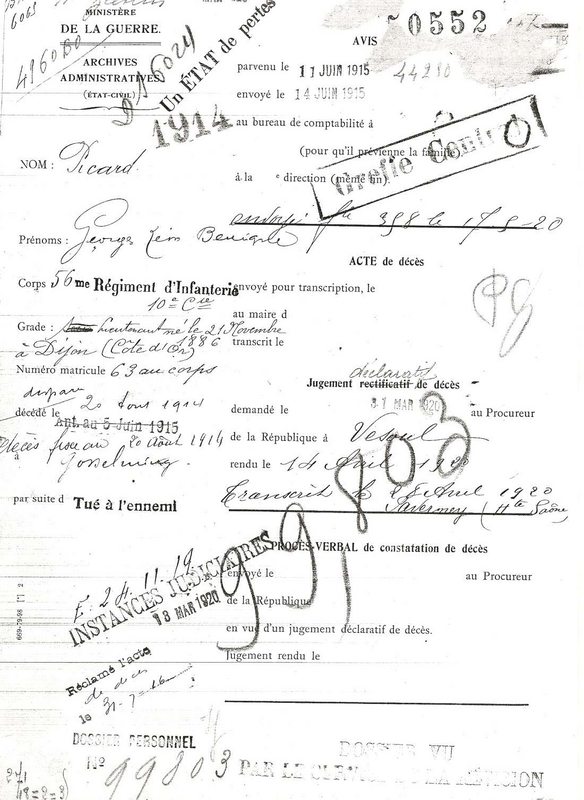 MINISTÈRE
DE LA GUERRE.
ARCHIVES
ADMINISTRATIVES
(ÉTAT-CIVIL)
6063
496080
D 16024
Un ÉTAT de pertes
1914
NOM : Picard
Prénoms : Georges Léon Benigne
Corps 56me Régiment d'Infanterie
10e Cie
Grade : Lieutenant né le 21 Novembre
1886
à Dijon (Côte d'Or)
Numéro matricule 63 au corps
disparu
décédé le 20 Aout 1914
Ant. au 5 Juin 1915
décès fixé au 20 Août 1914
à Gosselming
par suite d Tué à l'ennemi
E. 24.11.19
INSTANCES JUDICIAIRES
18 MAR 1920
Réclamé l'acte
de décès
le 31-7-16
DOSSIER PERSONNEL
N° 99803
669-79-98
AVIS
0552
parvenu le 11 JUIN 1915
44210
envoyé le 14 JUIN 1915
au bureau de comptabilité à
(pour qu'il prévienne la famille)
à la e direction (même fin).
Greffe Central
398 le 17-9-20
ACTE de décès
envoyé pour transcription, le
au maire d
transcrit le
déclaratif
Jugement rectificatif de décès
demandé le 31 MAR 1920 au Procureur
de la République à Vesoul
rendu le 14 Avril 1920
Transcrit le 28 Avril 1920
(Hte Saône)
99803
PROCÈS-VERBAL de constatation de décès
envoyé le au Procureur
de la République
en vue d'un jugement déclaratif de décès.
Jugement rendu le
DOSSIER VU
PAR LE SERVICE DE LA REVISION